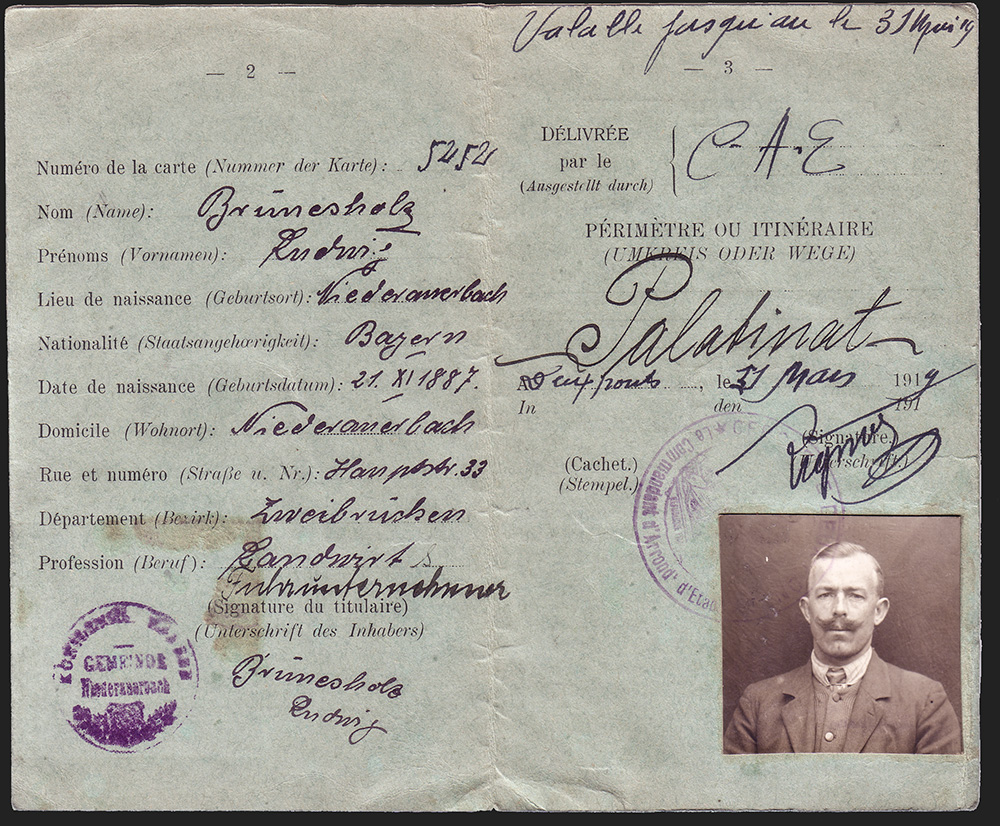 — 2 —
Numéro de la carte (Nummer der Karte): 5252
Nom (Name): Brünesholz
Prénoms (Vornamen): Ludwig
Lieu de naissance (Geburtsort): Niederauerbach
Nationalité (Staatsangehœrigkeit): Bayern
Date de naissance (Geburtsdatum): 21. XI 1887.
Domicile (Wohnort): Niederauerbach
Rue et numéro (Straße u. Nr.): Hauptstr. 33
Département (Bezirk): Zweibrücken
Profession (Beruf): Landwirt
Fuhrunternehmer
(Signature du titulaire)
(Unterschrift des Inhabers)
Brünesholz
Ludwig
GEMEINDE
Niederauerbach
Valable jusqu'au le 31 Mai 19
— 3 —
DÉLIVRÉE
par le
(Ausgestellt durch)
C. A. E
PÉRIMÈTRE OU ITINÉRAIRE
(UMKREIS ODER WEGE)
Palatinat
A Deux ponts, le 31 Mars 1919
In den 191
(Signature.)
(Unterschrift.)
(Cachet.)
(Stempel.)
Le Commandant d'Arrond. d'Etap